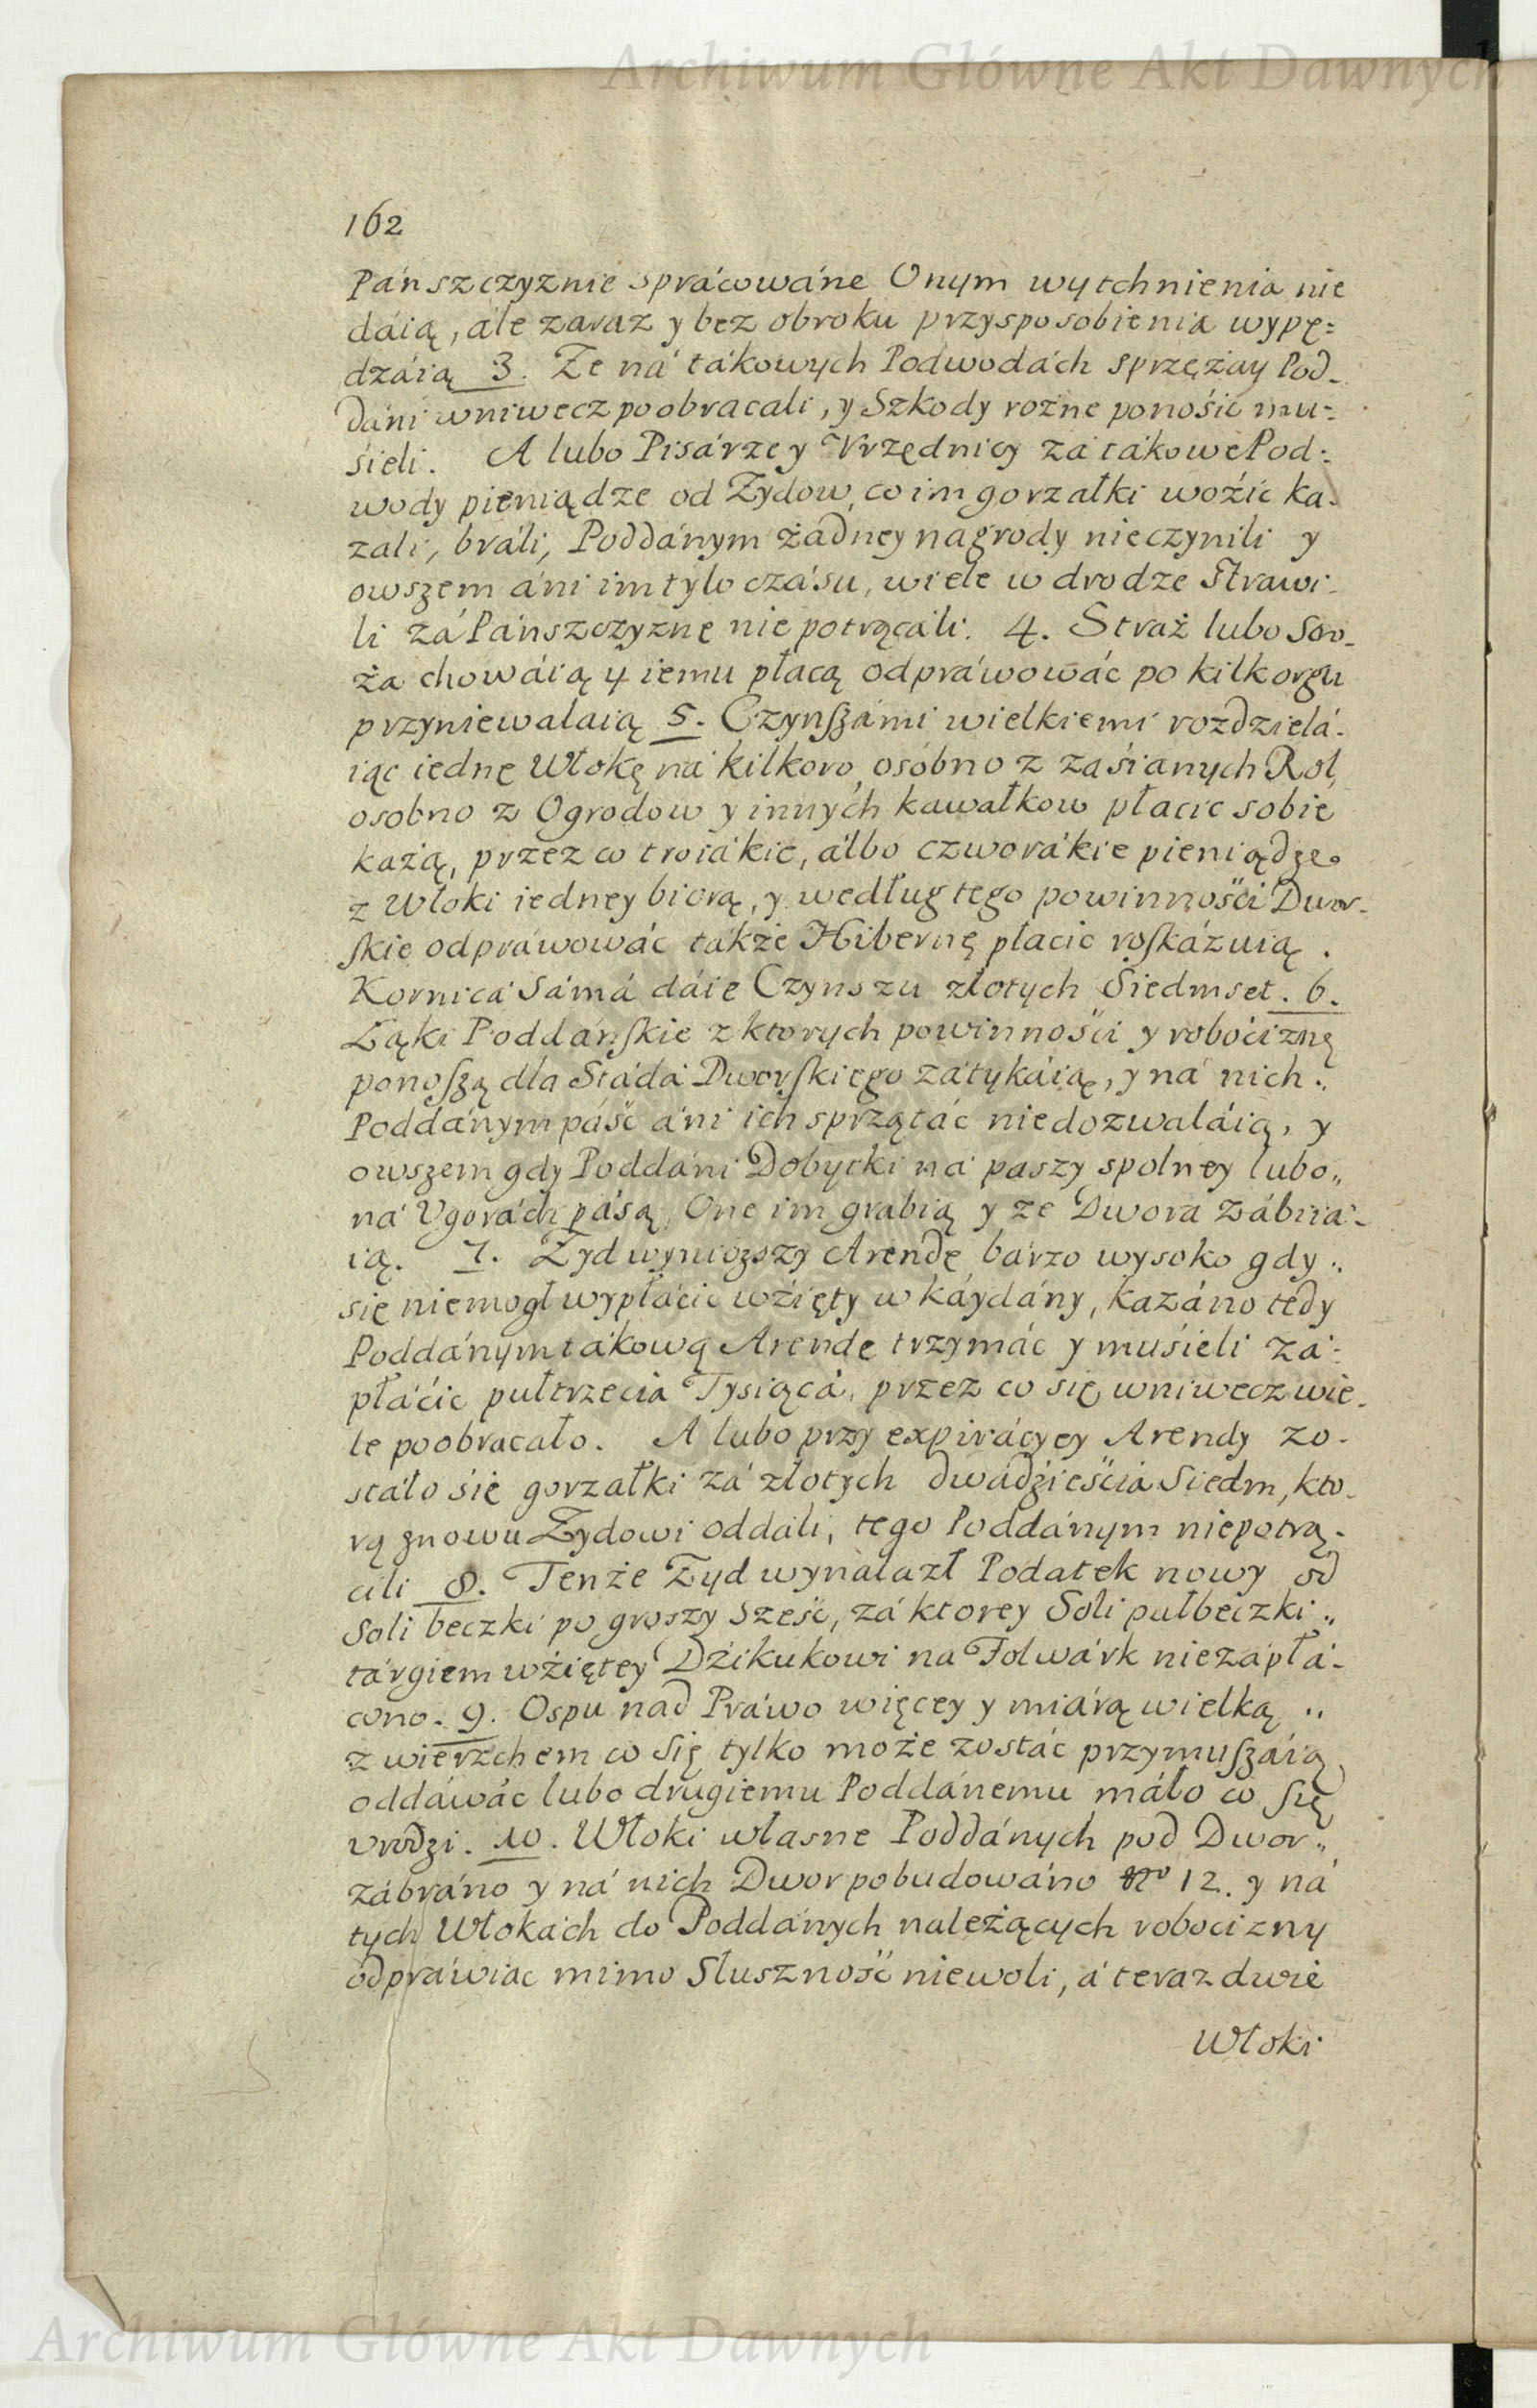 Archiwum Główne Akt Dawnych
162
Pánszczyznie sprácowáne Onym wytchnienia nie
dáią, ále zaraz y bez obroku przysposobienia wypę=
dzáią 3. Ze ná tákowych Podwodách sprzężay Pod-
dáni wniwecz poobracali, y Szkody rożne ponośić mu-
śieli. A lubo Pisárze y Vrzędnicy zá tákowe Pod-
wody pieniądze od Zydow, co im gorzałki woźić ka-
zali, bráli, Poddánym żadney nagrody nieczynili y
owszem áni im tylo czásu, wiele w drodze Strawi-
li zá Pánszczyznę nie potrącáli. 4. Straż lubo Stro-
ża chowáią y iemu płacą odpráwowáć po kilkorgu
przyniewalaią 5. Czynszámi wielkiemi rozdzielá-
iąc iednę Włokę ná kilkoro, osóbno z zaśianych Rol
osobno z Ogrodow y innych kawałkow płacic sobie
każą, przez co troiákie, álbo czworákie pieniądze
z Włoki iedney biorą, y według tego powinnośći Dwor-
skie odpráwowáć tákże Hibernę płacic roskázuią.
Kornicá Sámá dáie Czynszu złotych Siedmset. 6.
Łąki Poddáńskie z ktorych powinnośći y robociznę
ponoszą dla Stádá Dworskiego zátykáią, y ná nich
Poddánym páść áni ich sprzątác niedozwaláią, y
owszem gdy Poddáni Dobytki ná paszy spolney lubo
ná Vgorách pásą, One im grabią y ze Dwora zábiiá-
ią. 7. Zyd wyniozszy Arendę bárzo wysoko gdy
się niemogł wypłácic wźięty w káydány, kazáno tedy
Poddánym tákową Arendę trzymác y muśieli zá-
płácic pułtrzecia Tysiącá, przez co się wniwecz wie-
le poobracało. A lubo przy expirácyey Arendy zo-
stáło śię gorzałki zá złotych dwádźieśćia Siedm, kto-
rą znowu Zydowi oddáli, tego Poddánym niepotrą-
cili 8. Tenże Zyd wynalazł Podatek nowy od
Soli beczki po groszy sześć, zá ktorey Soli pułbeczki
tárgiem wźiętey Dźikukowi na Folwárk niezápłá-
cono. 9. Ospu nad Práwo więcey y miárą wielką
z wierzchem co się tylko może zostác przymuszáią
oddáwác lubo drugiemu Poddánemu máło co się
vrodzi. 10. Włoki własne Poddánych pod Dwor
zábráno y ná nich Dwor pobudowáno No 12. y ná
tych Włokách do Poddánych należących robocizny
odpráwiac mimo Słuszność niewoli, á teraz dwie
Włoki
Archiwum Główne Akt Dawnych